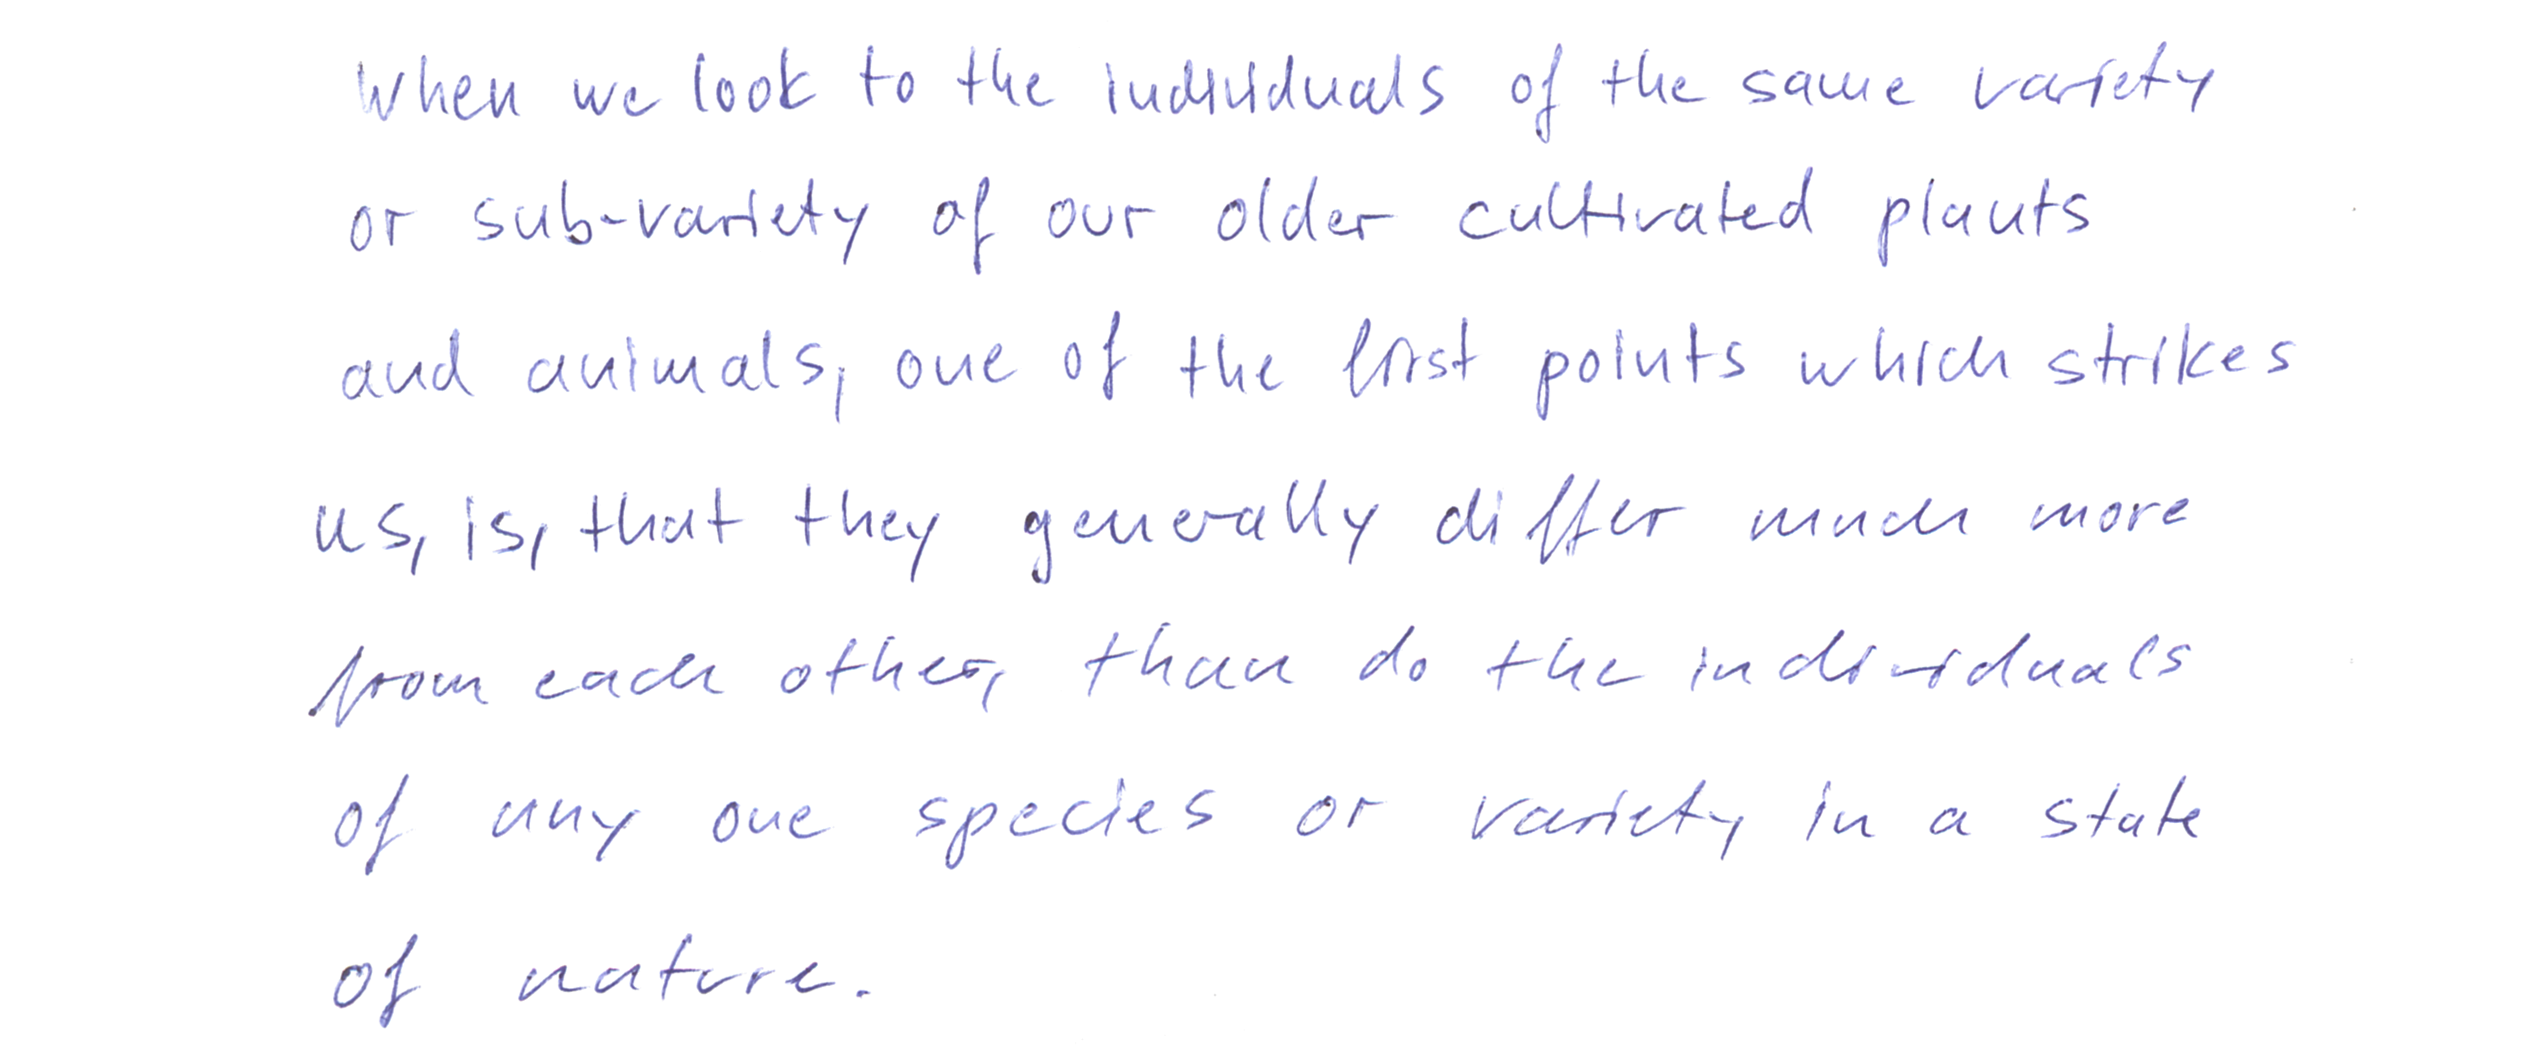 When we look to the individuals of the same variety
or sub-variety of our older cultivated plants
and animals, one of the first points which strikes
us, is, that they generally differ much more
from each other, than do the individuals
of any one species or variety in a state
of nature.